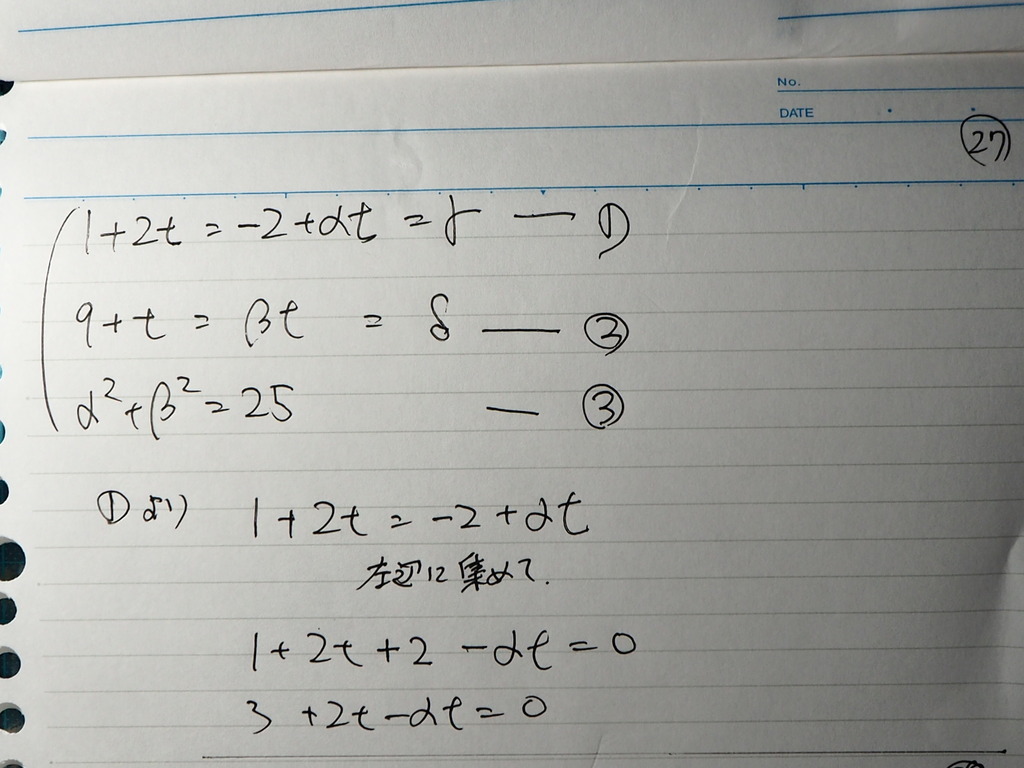 No.
DATE
㉗
1+2t = -2+αt = γ — ①
9+t = βt = δ — ③
α²+β² = 25 — ③
①より 1+2t = -2+αt
左辺に集めて.
1+2t+2-αt=0
3+2t-αt=0